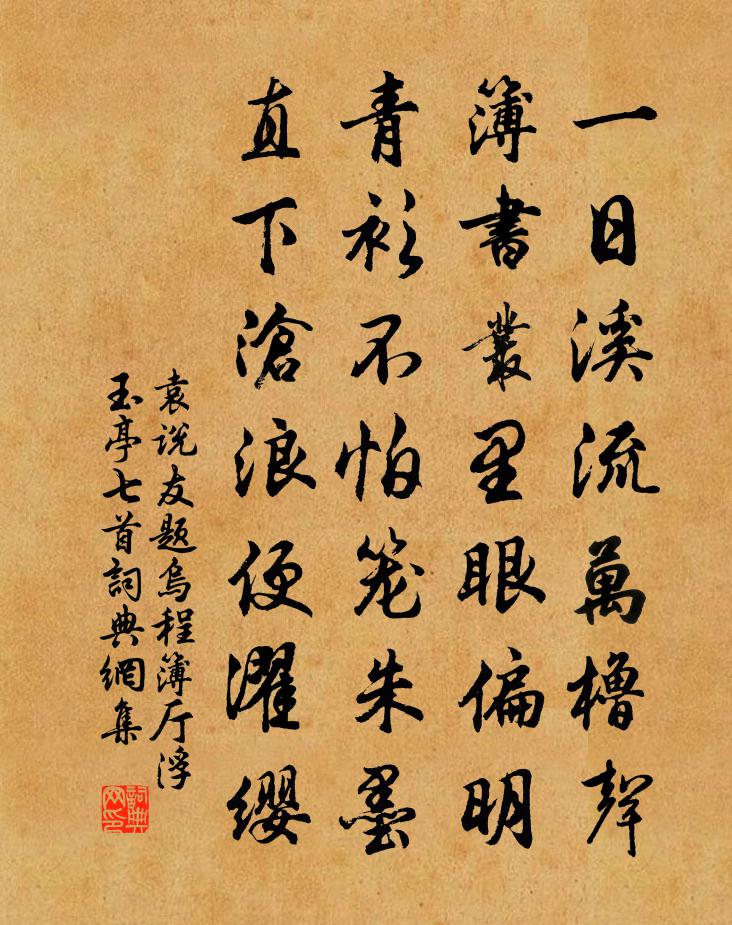 一日溪流萬櫓聲
簿書叢里眼偏明
青衫不怕笼朱墨
直下滄浪便濯纓
袁说友题烏程簿厅浮
玉亭七首詞典網集
詞典網印